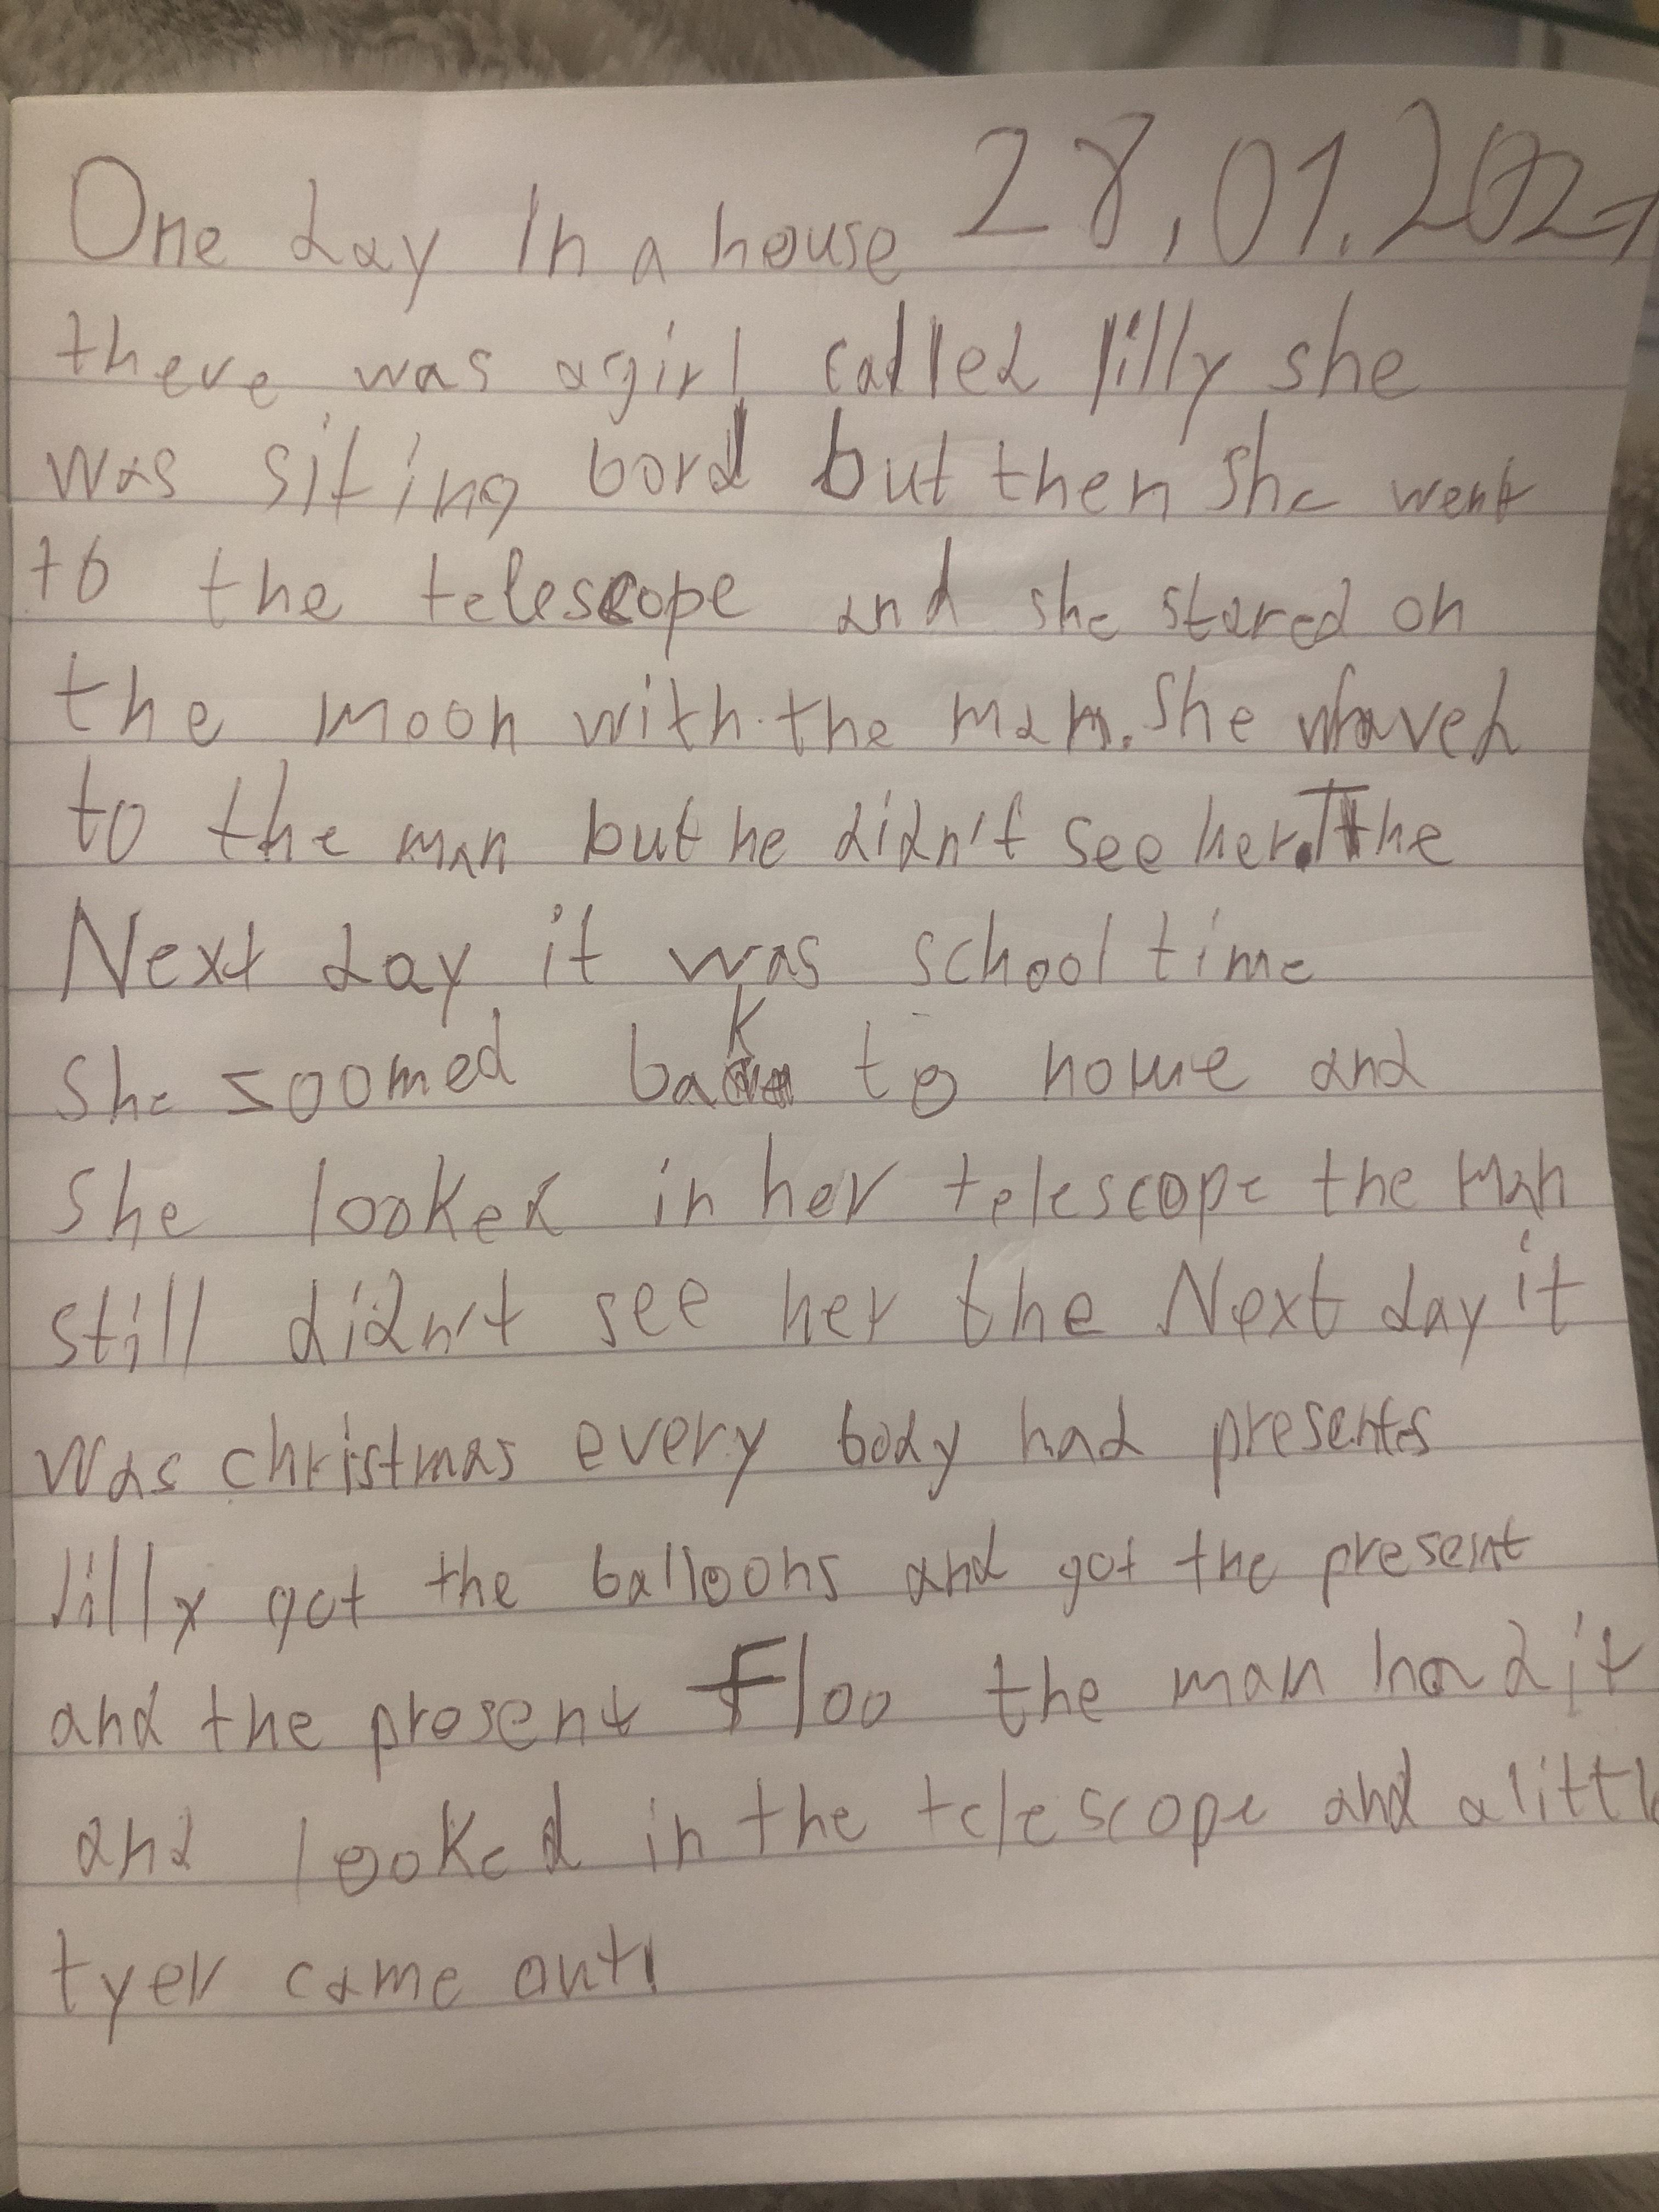 One day In a house 28.01.2021
there was a girl called lilly she
was siting bord but then she went
to the telescope and she stared on
the moon with the man. She waved
to the man but he didn't see her. The
Next day it was school time
She soomed back to home and
She looked in her telescope the man
still didn't see her the Next day it
was christmas every body had presents
lilly got the balloons and got the present
and the present Floo the man had it
and looked in the telescope and a little
tyer came out!